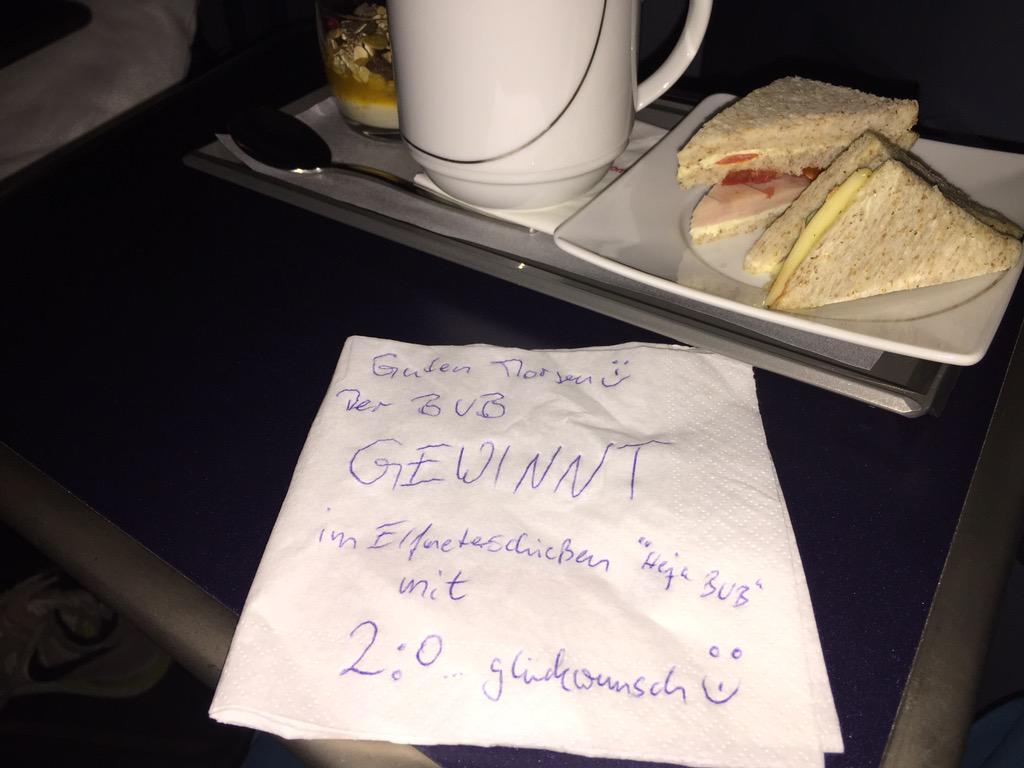 Guten Morgen Ü
Der BVB
GEWINNT
im Elfmeterschießen "Heja BVB"
mit
2:0... glückwunsch Ü